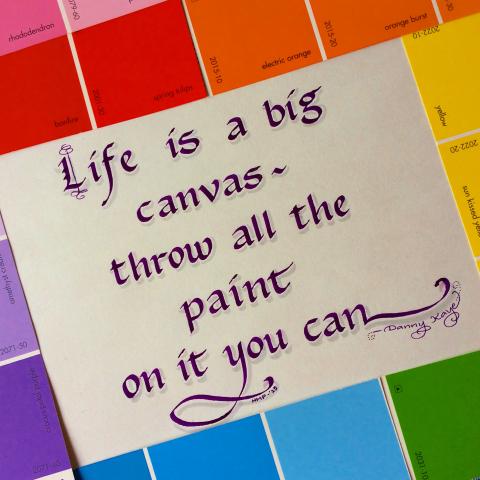 rhododendron
2079-60
bonfire
2001-30
spring tulips
2015-10
electric orange
2015-20
orange burst
2022-10
yellow
2022-20
sun kissed yellow
Life is a big
canvas~
throw all the
paint
on it you can
-Danny Kaye
2071-50
2071-40
2031-10